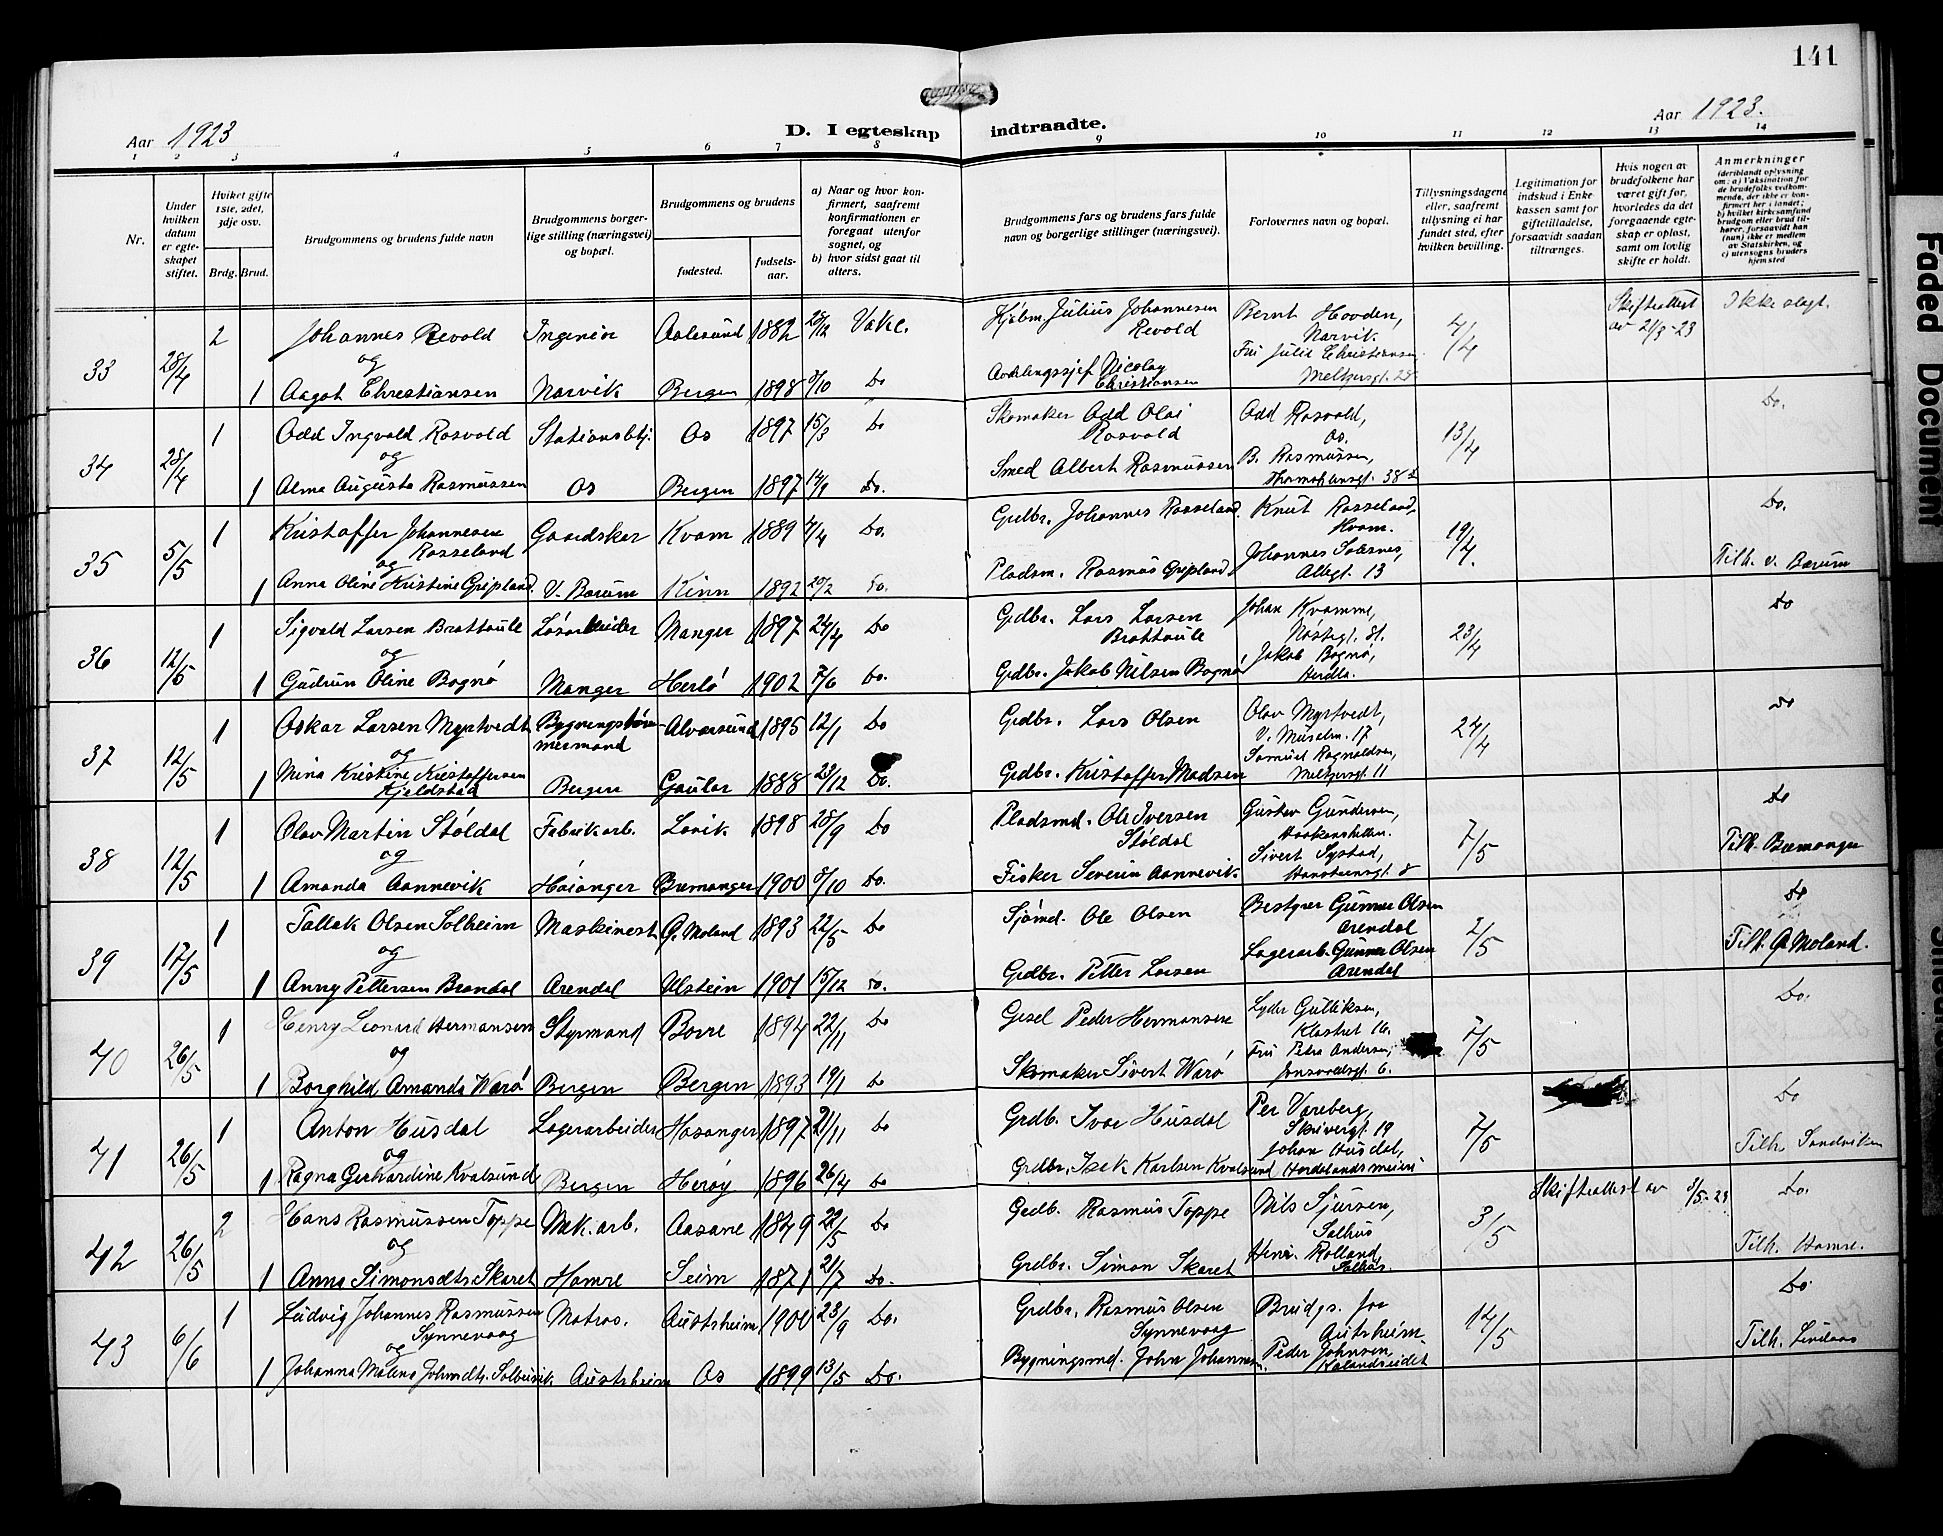 141
Aar 1923
D. I egteskap indtraadte.
Aar 1923.
1 2 3 4 5 6 7 8 9 10 11 12 13 14
Nr.
Under hvilken datum er egteskapet stiftet.
Hvilket gifte 1ste, 2det, 3dje osv.
Brdg. Brud.
Brudgommens og brudens fulde navn
Brudgommens borgerlige stilling (næringsvei) og bopæl.
Brudgommens og brudens
fødested.
fødselsaar.
a) Naar og hvor konfirmert, saafremt konfirmationen er foregaaet utenfor sognet, og
b) hvor sidst gaat til alters.
Brudgommens fars og brudens fars fulde navn og borgerlige stillinger (næringsvei).
Forlovernes navn og bopæl.
Tillysningsdagene eller, saafremt tillysning ei har fundet sted, efter hvilken bevilling.
Legitimation for indskud i Enkekassen samt for giftetilladelse, forsaavidt saadan tiltrænges.
Hvis nogen av brudefolkene har været gift før, hvorledes da det foregaaende egteskap er opløst, samt om lovlig skifte er holdt.
Anmerkninger (deriblandt oplysning om: a) Vaksination for de brudefolks vedkommende, der ikke er konfirmert her i landet; b) hvilket kirkesamfund brudgom eller brud tilhører, forsaavidt han (hun) ikke er medlem av Statskirken, og c) utensogns bruders hjemsted
33 28/4 2 Johannes Revold Ingeniør Aalesund 1882 Vake. Hjelm. Julius Johannesen Revold Bernt Hovden, Narvik. 4/4 Skifteattest av 21/3-23 Ikke slegt.
og
1 Aagot Christiansen Narvik Bergen 1898 Do Avdelingssjef Nicolay Christiansen Fru Julie Christiansen Meltzersgt. 28
34 28/4 1 Odd Ingvald Rosvold Stationsbtj. Os 1897 15/3 Do Skomaker Odd Olai Rosvold Odd Rosvold, Os. 13/4 Do.
og
1 Alma Augusta Rasmussen Os Bergen 1897 14/9 Do. Smed Albert Rasmussen B. Rasmussen,
35 5/5 1 Kristoffer Johannesen Rosseland Gaardskar Kvam 1889 4/4 Do. Grdbr. Johannes Rosseland. Knut Rosseland, Kvam. 19/4. Do.
og
1 Anna Oline Kristine Gripland. V. Bærum Kinn 1892 20/2 Do. Pladsm. Rasmus Gripland Johannes Solesnes, Allegt. 13 Tilh. V. Bærum
36 12/5 1 Sigvald Larsen Brattaule Løsarbeider Manger 1897 24/4 Do Grdbr. Lars Larsen Brattaule Johan Kvamme, Nøstegt. 81. 23/4 Do
og
1 Gudrun Oline Bognø Manger Herlø 1902 7/6 Do. Grdbr. Jakob Nilsen Bognø Jakob Bognø, Herdla.
37 12/5 1 Oskar Larsen Myrtvedt Bygningstømmermand Alversund 1895 12/1 Do Grdbr. Lars Olsen Olav Myrtvedt, V. Muselm. 17 24/4 Do
og
1 Nina Kristine Kristoffersen Kjeldstad Bergen Gaular 1888 29/12 Do. Grdbr. Kristoffer Madsen Samuel Ragnaldsen, Meltzersgt. 11
38 12/5 1 Olav Martin Støldal Fabrikarb. Lavik 1898 28/9 Do Pladsmd. Ole Iversen Støldal Gustav Gundersen, 7/5 Do
og
1 Amanda Aannevik Høianger Bremanger 1900 8/10 Do. Fisker Severin Aannevik Sivert Systad, Hansteensgt. 8 Tilh. Bremanger
39 17/5 1 Tallak Olsen Solheim Maskinest Ø. Moland 1893 22/5 Do Sjømd. Ole Olsen Bestyrer Gunnar Olsen Arendal 2/5 Do
og
1 Anny Pettersen Brandal Arendal Ulstein 1901 15/12 Do. Grdbr. Petter Larsen Lagerarb. Gunnar Olsen Arendal Tilh. Ø Moland.
40 26/5 1 Henry Leonard Hermansen Styrmand Borre 1894 22/11 Do Gesel Peder Hermansen Lyder Gulliksen, Klostret 16. 7/5 Do.
og
1 Borghild Amanda Warø Bergen Bergen 1893 19/1 Do Skomaker Sivert Warø Fru Petra Andersen, Jonsvoldsgt. 6.
41 26/5 1 Anton Husdal Lagerarbeider Hosanger 1897 21/11 Do Grdb. Ivar Husdal Per Vareberg, Skivergt. 19 7/5 Do
og
1 Ragna Gerhardine Kvalsund Bergen Herøy 1896 26/4 Do Grdbr. Isak Karlsen Kvalsund Johan Husdal, Hordalandsmeieri Tilh. Sandviken
42 26/5 2 Hans Rasmussen Toppe Mek. arb. Aasane 1849 22/5 Do Grdb. Rasmus Toppe Nils Sjursen, Salhus 3/5 Skifteattest av 8/5-23 Do.
og
1 Anna Simonsdtr Skaret Hamre Seim 1871 21/7 Do. Grdbr. Simon Skaret Henr. Rolland, Salhus. Tilh. Hamre.
43 6/6 1 Ludvig Johannes Rasmussen Synnevaag Matros. Austrheim 1900 23/9 Do. Grdbr. Rasmus Olsen Synnevaag Brudgs. far Austrheim 14/5 Do
og
1 Johanna Malene Johnsdtr. Solbervik Austrheim Os 1899 13/5 Do. Bygningsmd. John Johannesen. Peder Johnsen, Kalandseidet Tilh. Lindaas
Faded Document